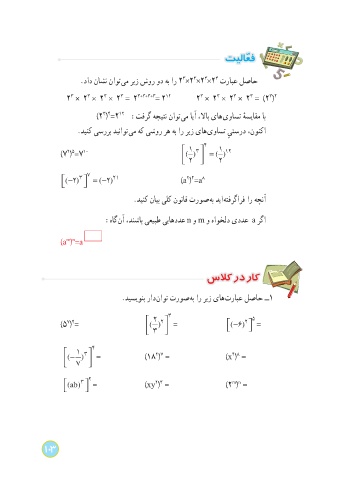 فعّالیت
حاصل عبارت ۲^۳×۲^۳×۲^۳×۲^۳ را به دو روش زیر می‌توان نشان داد.
۲^۳ × ۲^۳ × ۲^۳ × ۲^۳ = ۲^{۳+۳+۳+۳} = ۲^{۱۲}    ۲^۳ × ۲^۳ × ۲^۳ × ۲^۳ = (۲^۳)^۴
با مقایسهٔ تساوی‌های بالا، آیا می‌توان نتیجه گرفت : (۲^۳)^۴=۲^{۱۲}
اکنون، درستی تساوی‌های زیر را به هر روشی که می‌توانید بررسی کنید.
(۷^۲)^۵=۷^{۱۰}    [(۱/۲)^۳]^۴ = (۱/۲)^{۱۲}
[(−۲)^۳]^۷ = (−۲)^{۲۱}    (a^۴)^۲=a^۸
آنچه را فراگرفته‌اید به‌صورت قانون کلی بیان کنید.
اگر a عددی دلخواه و m و n عددهایی طبیعی باشند، آن‌گاه :
(a^m)^n=a^□
کار در کلاس
۱ــ حاصل عبارت‌های زیر را به‌صورت توان‌دار بنویسید.
(۵^۷)^۳=    [(۲/۳)^۲]^۳ =    [(−۶)^۴]^۵ =
[(−۱/۷)^۳]^۴ =    (۱۸^۲)^۷ =    (x^۲)^۸ =
[(ab)^۳]^۴ =    (xy^۲)^۳ =    (۲^m)^n =
۱۰۳